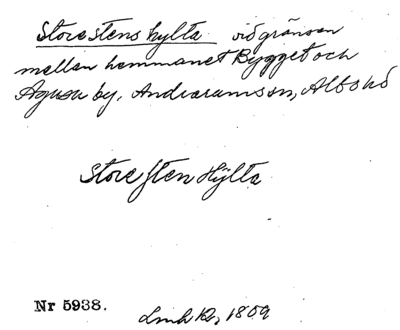 Storestens hylta vid gränsen
mellan hemmanet Bygget och
Agusa by, Andrarums sn, Albo hd
Store sten Hÿlta
Nr 5938.
Lmh 12, 1809